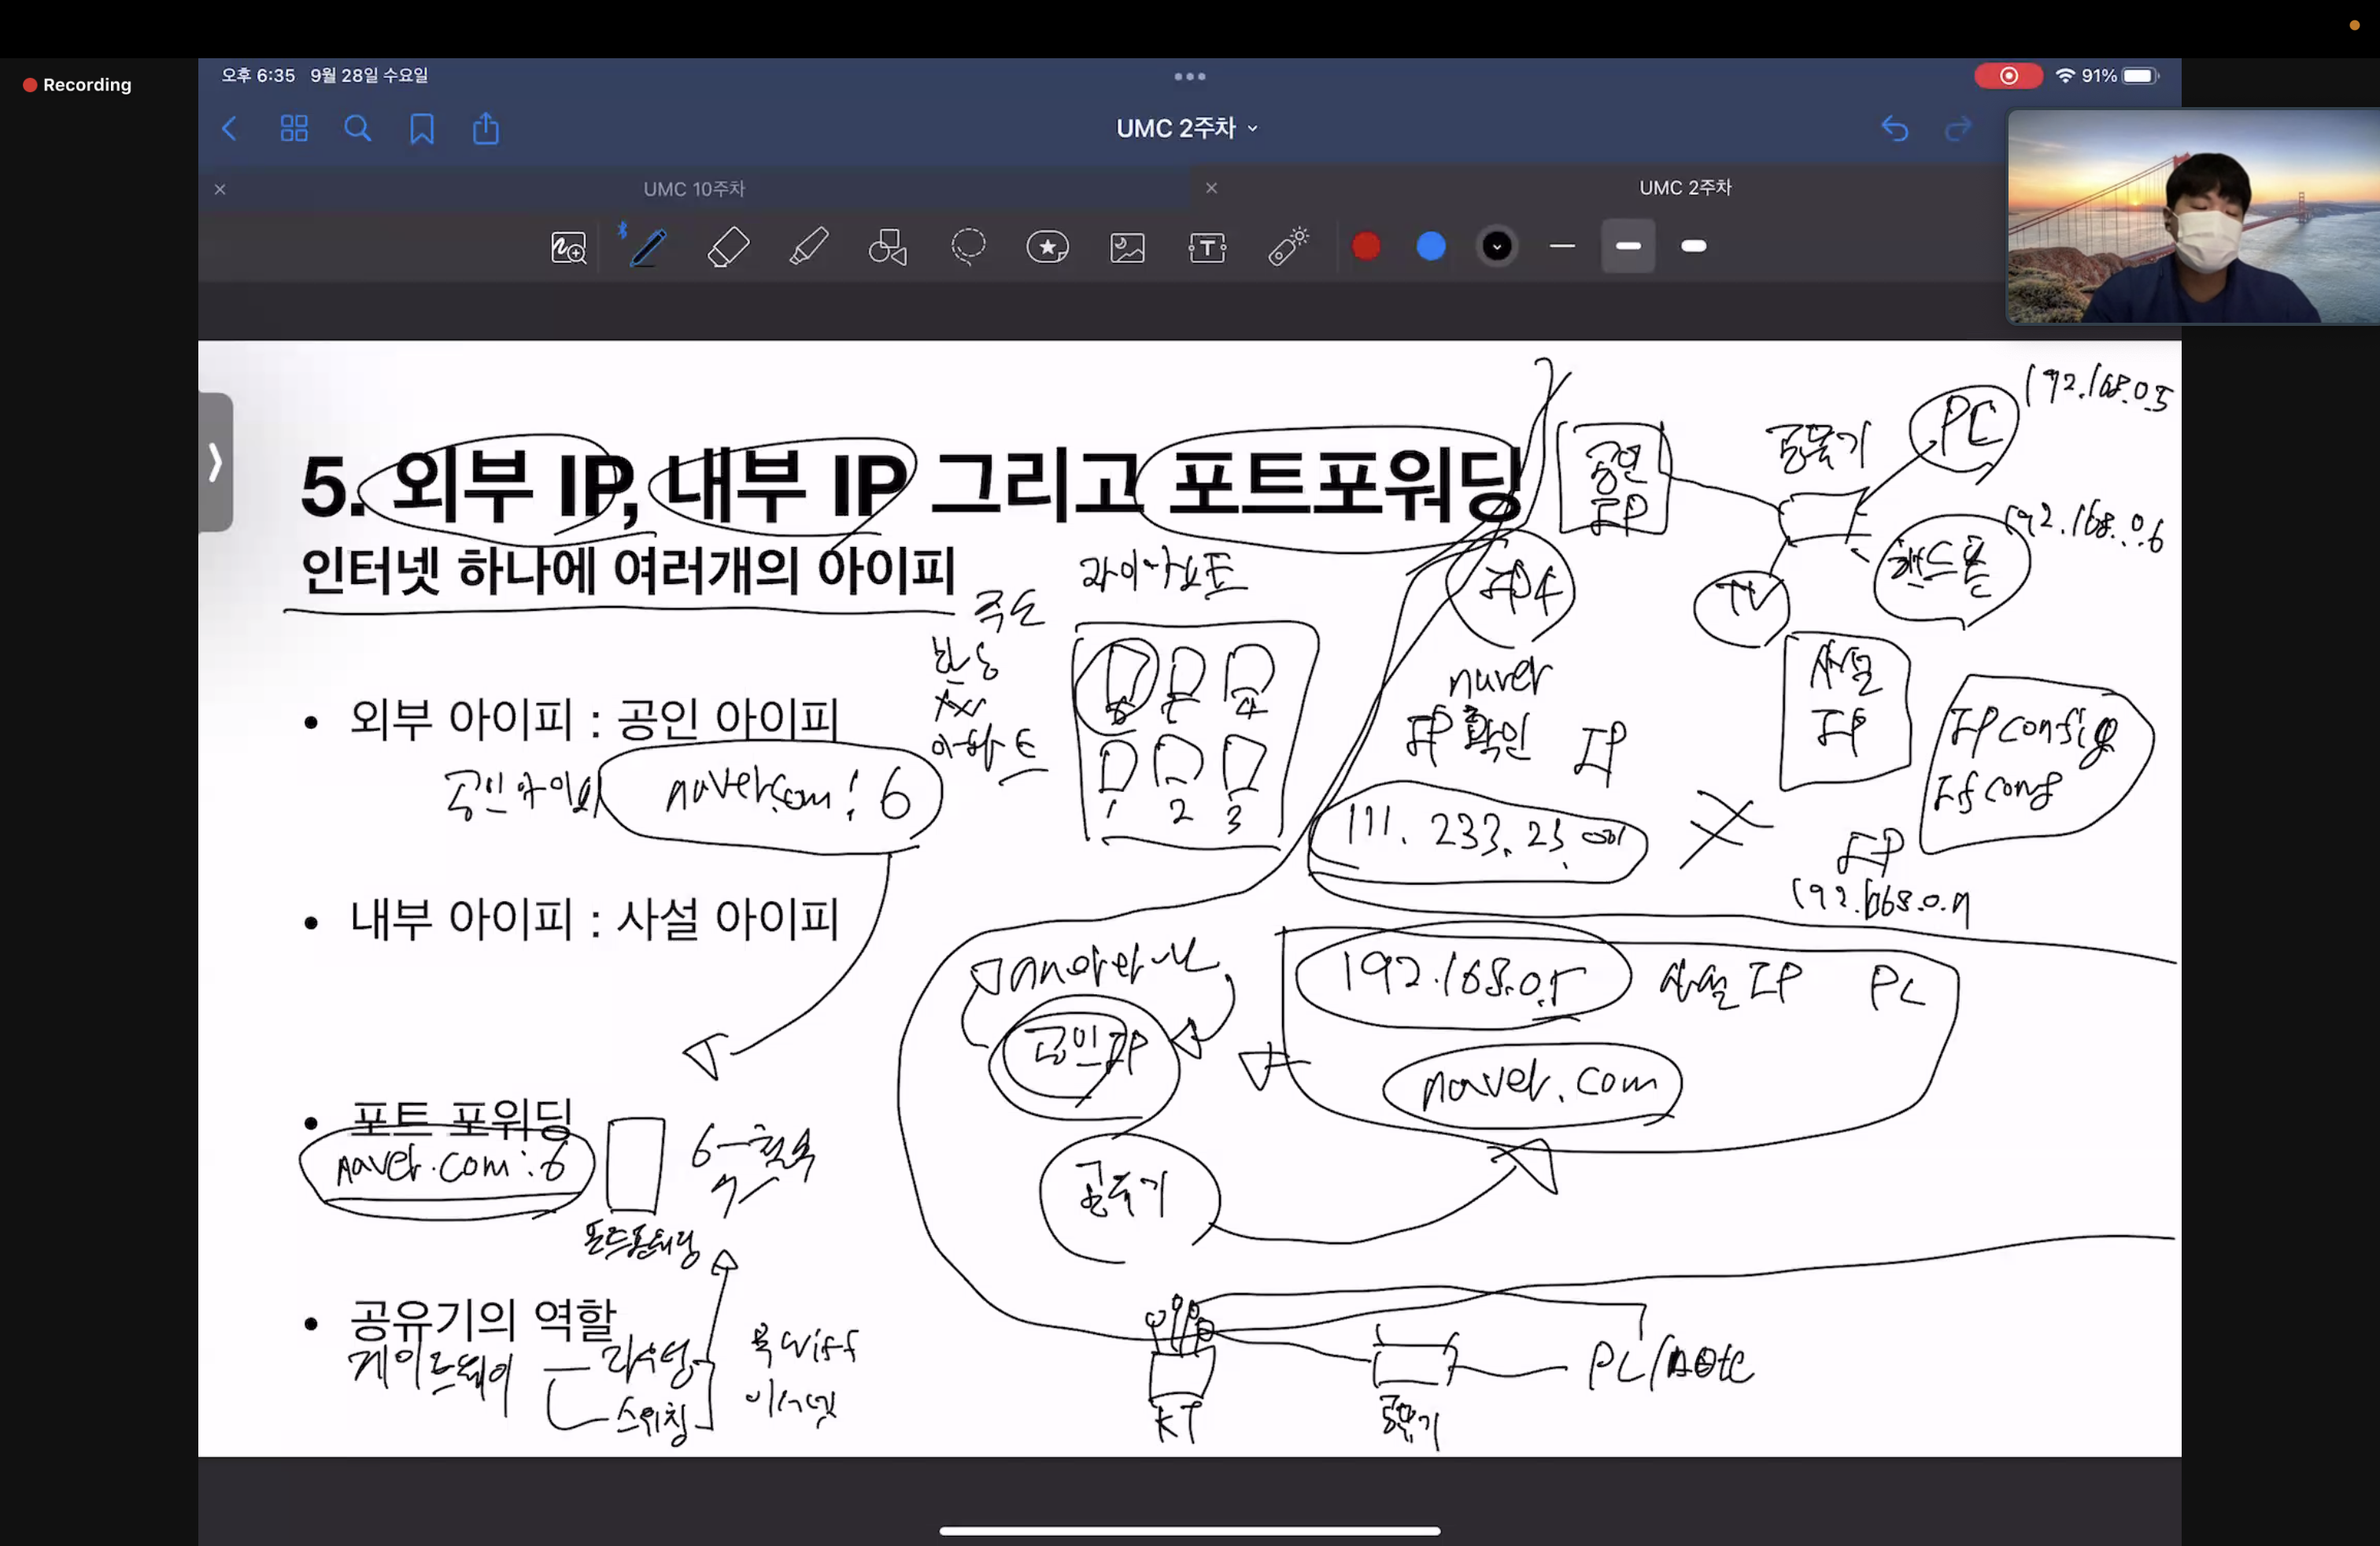 Recording
오후 6:35 9월 28일 수요일
91%
UMC 2주차
UMC 10주차
UMC 2주차
5. 외부 IP, 내부 IP 그리고 포트포워딩
인터넷 하나에 여러개의 아이피
공인
IP
공유기
PC
192.168.0.5
핸드폰
192.168.0.6
TV
IP4
주소
아파트
6 5 4
1 2 3
naver
IP 확인
IP
사설
IP
IPconfig
• 외부 아이피 : 공인 아이피
공인아이피 naver.com:6
111.233.23.001
IP
• 내부 아이피 : 사설 아이피
192.168.0.5 사설 IP PC
공인IP
naver.com
• 포트 포워딩
naver.com:6
포트포워딩
공유기
• 공유기의 역할
게이트웨이
라우팅
스위칭
KT
공유기
PC/note